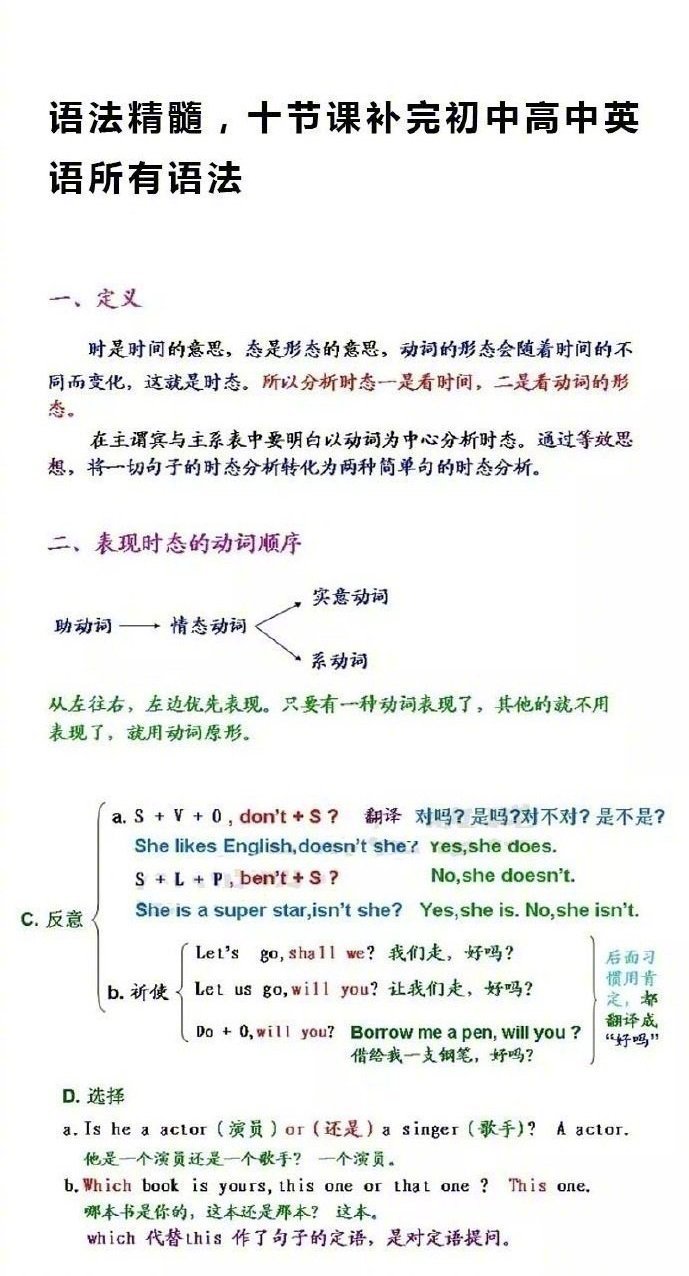 语法精髓，十节课补完初中高中英
语所有语法
一、定义
时是时间的意思，态是形态的意思，动词的形态会随着时间的不
同而变化，这就是时态。所以分析时态一是看时间，二是看动词的形
态。
在主谓宾与主系表中要明白以动词为中心分析时态。通过等效思
想，将一切句子的时态分析转化为两种简单句的时态分析。
二、表现时态的动词顺序
实意动词
助动词 → 情态动词
系动词
从左往右，左边优先表现。只要有一种动词表现了，其他的就不用
表现了，就用动词原形。
a. S + V + O , don't + S ? 翻译 对吗？是吗？对不对？是不是？
She likes English,doesn't she? Yes,she does.
S + L + P, ben't + S ? No,she doesn't.
C. 反意
She is a super star,isn't she? Yes,she is. No,she isn't.
Let's go,shall we? 我们走，好吗？
b. 祈使
Let us go,will you? 让我们走，好吗？
Do + O,will you? Borrow me a pen, will you ?
借给我一支钢笔，好吗？
后面习
惯用肯
定，都
翻译成
“好吗”
D. 选择
a. Is he a actor（演员）or（还是）a singer（歌手）? A actor.
他是一个演员还是一个歌手？ 一个演员。
b. Which book is yours, this one or that one ? This one.
哪本书是你的，这本还是那本？ 这本。
which 代替this 作了句子的定语，是对定语提问。